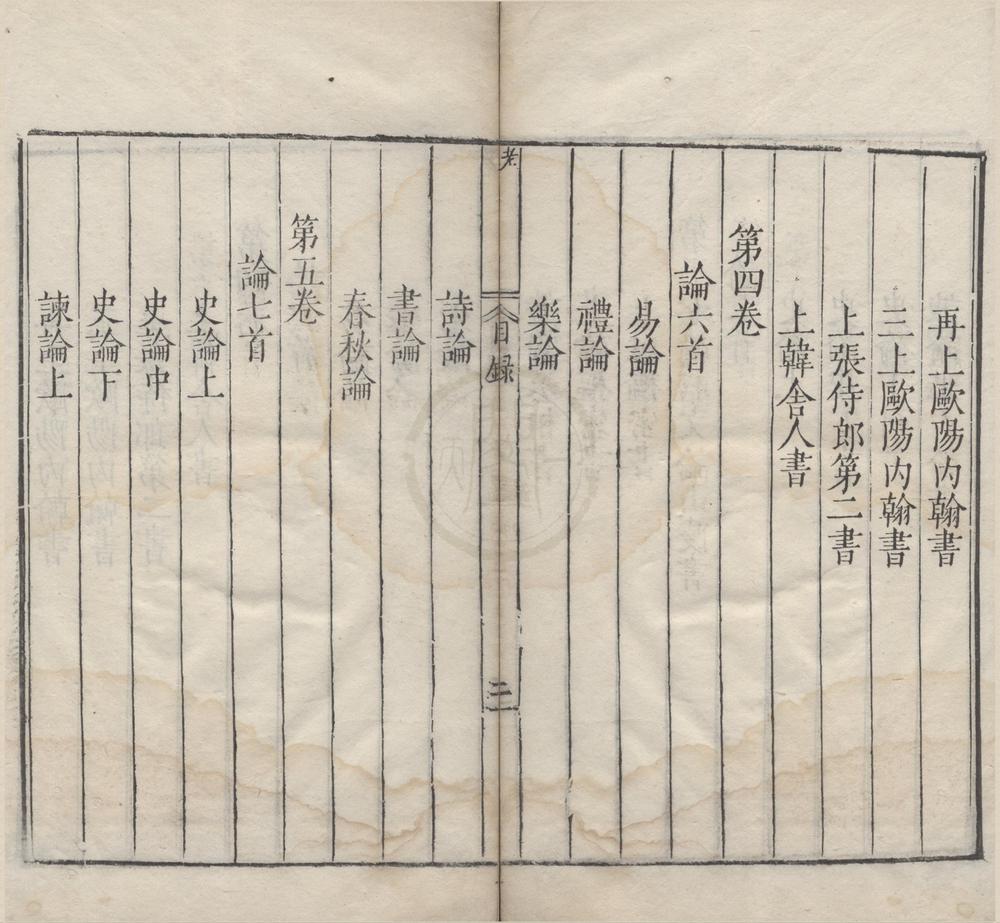 再上歐陽内翰書
三上歐陽内翰書
上張侍郎第二書
上韓舍人書
第四卷
論六首
易論
禮論
樂論
老
目録
二
詩論
書論
春秋論
第五卷
論七首
史論上
史論中
史論下
諫論上